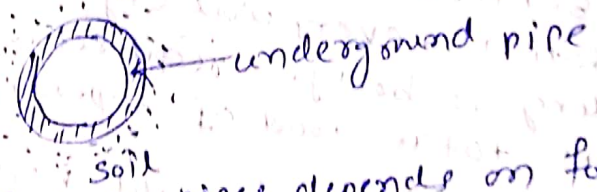 underground pipe
soil
depends on